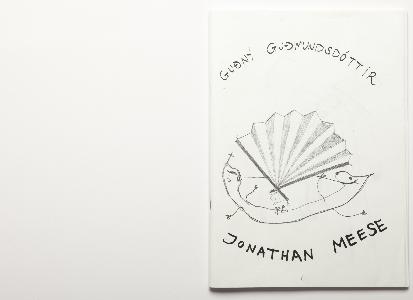 GUÐNÝ GUÐMUNDSDÓTTIR
JONATHAN MEESE